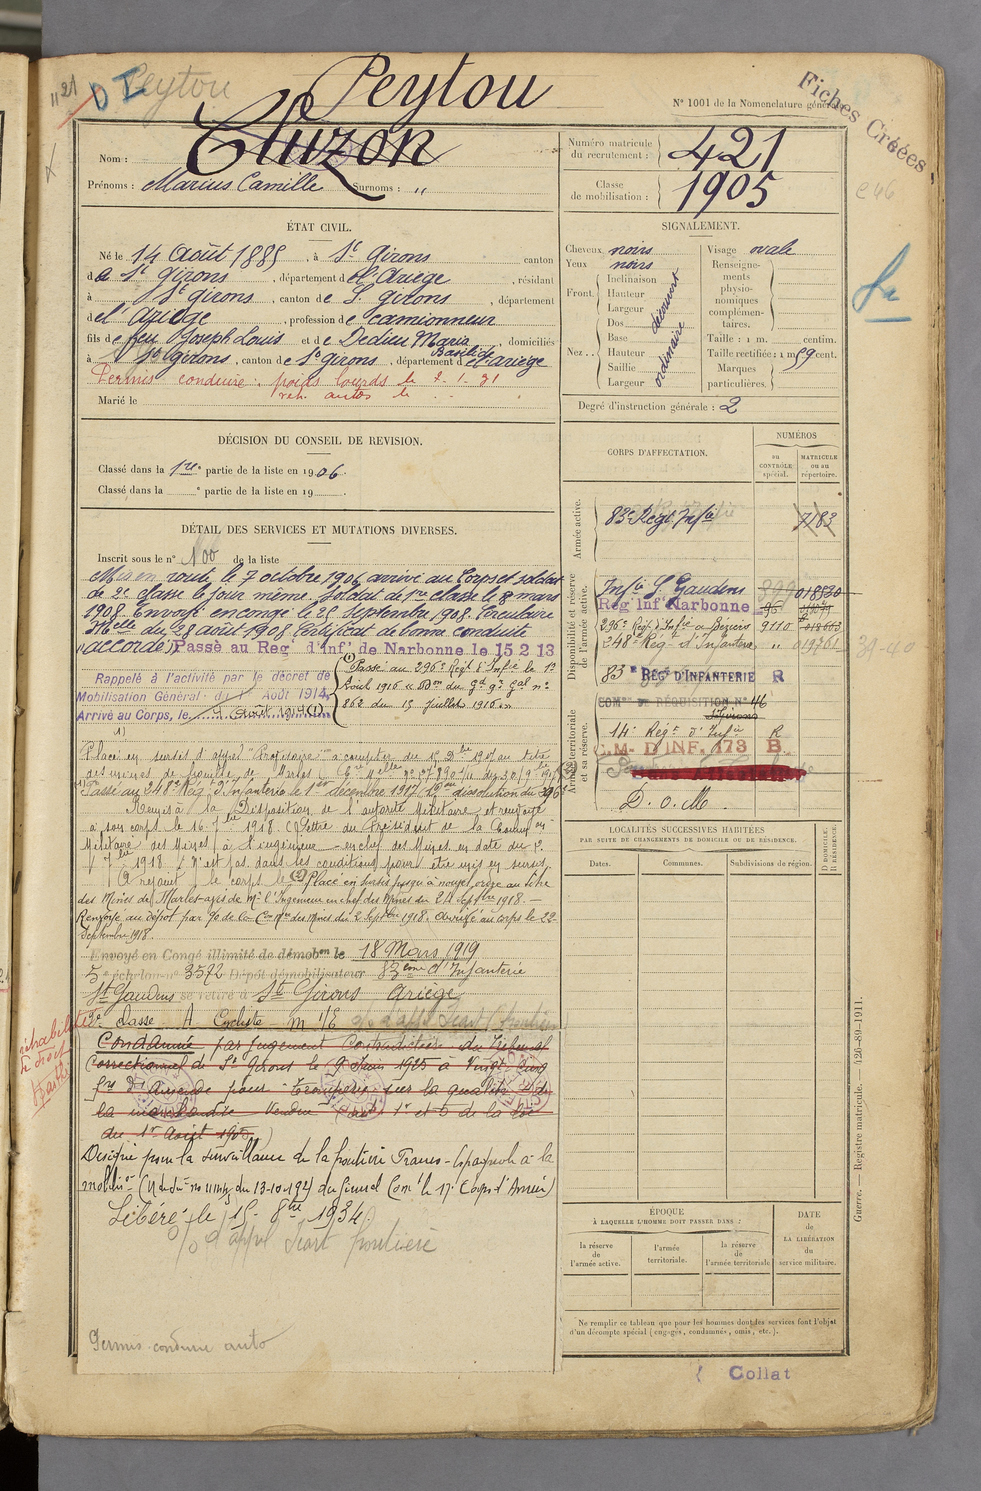 "21
DI Peytou
Peytou
N° 1001 de la Nomenclature générale
Fiches Créées
Nom : Cluzon
Prénoms : Marius Camille Surnoms : "
Numéro matricule du recrutement : 421
Classe de mobilisation : 1905
ÉTAT CIVIL.
Né le 14 Août 1885, à St Girons canton
de St Girons, département de l'Ariège, résidant
à St Girons, canton de St Girons, département
de l'Ariège, profession de camionneur
fils de feu Joseph Louis et de Dedieu Maria Basilide, domiciliés
à St Girons, canton de St Girons, département de l'Ariège
Permis conduire poids lourds le 2-1-31
veh. autos le
Marié le
SIGNALEMENT.
Cheveux noirs
Yeux noirs
Front. Inclinaison Hauteur Largeur découvert
Nez. Dos Base Hauteur Saillie Largeur ordinaire
Visage ovale
Renseignements physionomiques complémentaires.
Taille : 1 m. centim.
Taille rectifiée : 1 m 59 cent.
Marques particulières.
Degré d'instruction générale : 2
DÉCISION DU CONSEIL DE REVISION.
Classé dans la 1re partie de la liste en 1906.
Classé dans la e partie de la liste en 19
DÉTAIL DES SERVICES ET MUTATIONS DIVERSES.
Inscrit sous le n° 100 de la liste
Mis en route le 7 octobre 1906 arrivé au Corps et soldat
de 2e classe le jour même. Soldat de 1re classe le 8 mars
1908. Envoyé en congé le 25 Septembre 1908. Circulaire
Mlle du 28 août 1908. Certificat de bonne conduite
"accordé". Passé au Reg' d'Inf' de Narbonne le 15 2 13
Rappelé à l'activité par le décret de
Mobilisation Générale du 1er Août 1914,
Arrivé au Corps, le 4 Août 1914 (1)
(1) Passé au 296e Régt d'Infie le 1er
Août 1916 Don du Gd Qr Gal n°
862 du 15 Juillet 1916
Placé en sursis d'appel "Provisoire" à compter du 1er 1917 au titre
des mines de houille de Marles
Passé au 248e Rég d'Infanterie le 1er décembre 1917 dissolution du 296e
Remis à la Disposition de l'autorité Militaire et renvoyé
à son corps le 16 7bre 1918. (Lettre du Président de la Comon
Militaire des Mines à l'ingénieur en chef des Mines en date du
7bre 1918 (N'est pas dans les conditions pour être mis en sursis
A rejoint le corps le (2) Placé en sursis jusqu'à nouvel ordre au titre
des Mines de Marles avis de Mr l'Ingénieur en chef des Mines du 24 Septbre 1918. —
Renvoyé au dépôt par Don de la Con Mre des Mines du 2 Septbre 1918. Arrivé au corps le 22
Septembre 1918.
Envoyé en Congé illimité de démobon le 18 Mars 1919
5e échelon n° 3572 Dépôt démobilisateur 83ème d'Infanterie
St Gaudens se retire à St Girons Ariège
Classe A Cycliste
Condamné par jugement Contradictoire du Tribunal
Correctionnel de St Girons le 9 Juin 1925 à Vingt cinq
frs d'Amende pour Tromperie sur la qualité de
la marchandise Vendue (art. 1er et 5 de la loi
du 1er Août 1905.)
réhabilité de droit
Désigné pour la surveillance de la frontière Franco-Espagnole à la
mobilison du 13-10-192 du Général Comt le 17e Corps d'Armée)
Libéré le 15 8bre 1934
d'appel frontière
Permis conduire auto
CORPS D'AFFECTATION.
NUMÉROS
au CONTRÔLE spécial.
MATRICULE ou au répertoire.
Armée active.
83e Régt Infie 7183
Disponibilité et réserve de l'armée active.
Infie St Gaudens 399 018530
Reg' Inf' Narbonne 96
296e Régt d'Infie à Béziers 9110
248e Rég d'Infanterie " 019761
39-40
Armée territoriale et sa réserve.
83e REGt D'INFANTERIE R
COMon DE RÉQUISITION N° 46
St Girons
14e Régt d'Infie R
C.M. D'INF. 173 B.
Sans Affectation
D.O.M.
LOCALITÉS SUCCESSIVES HABITÉES
PAR SUITE DE CHANGEMENTS DE DOMICILE OU DE RÉSIDENCE.
Dates. Communes. Subdivisions de région. D DOMICILE. R RÉSIDENCE.
ÉPOQUE
À LAQUELLE L'HOMME DOIT PASSER DANS :
la réserve de l'armée active.
l'armée territoriale.
la réserve de l'armée territoriale
DATE de LA LIBÉRATION du service militaire.
Ne remplir ce tableau que pour les hommes dont les services font l'objet
d'un décompte spécial (engagés, condamnés, omis, etc.).
Guerre. — Registre matricule. — 426-89-1911.
Collat